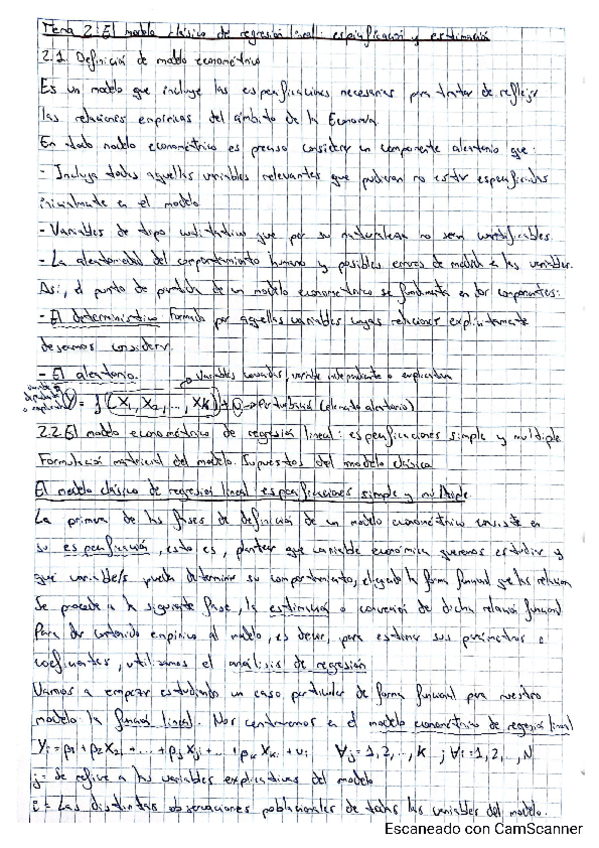 Tema 2: El modelo clásico de regresión lineal: especificación y estimación
2.1 Definición de modelo econométrico
Es un modelo que incluye las especificaciones necesarias para tratar de reflejar
las relaciones empíricas del ámbito de la Economía.
En todo modelo econométrico es preciso considerar un componente aleatorio que:
- Incluya todas aquellas variables relevantes que pudieran no estar especificadas
inicialmente en el modelo
- Variables de tipo cualitativo que por su naturaleza no sean cuantificables.
- La aleatoriedad del comportamiento humano y posibles errores de medida a las variables.
Así, el punto de partida de un modelo econométrico se fundamenta en dos componentes:
- El determinístico formado por aquellas variables cuyas relaciones explícitamente
deseamos considerar.
- El aleatorio.
variables conocidas, variable independiente o explicativa
variable dependiente o explicada
Y = f (X1, X2, ..., XK) + U → Perturbación (elemento aleatorio)
2.2 El modelo econométrico de regresión lineal: especificaciones simple y múltiple.
Formulación matricial del modelo. Supuestos del modelo clásico
El modelo clásico de regresión lineal especificaciones simple y múltiple
La primera de las fases de definición de un modelo econométrico consiste en
su especificación, esto es, plantear qué variable económica queremos estudiar y
qué variable/s puede determinar su comportamiento, eligiendo la forma funcional que las relaciona
Se procede a la siguiente fase, la estimación o conversión de dicha relación funcional
Para dar contenido empírico al modelo, es decir, para estimar sus parámetros o
coeficientes, utilizamos el análisis de regresión
Vamos a empezar estudiando un caso particular de forma funcional para nuestro
modelo la función lineal. Nos centraremos en el modelo econométrico de regresión lineal
Yi = β1 + β2X2i + ... + βjXji + ... + βkXki + ui ∀j = 1, 2, .., K ; ∀i = 1, 2, .., N
j = se refiere a las variables explicativas del modelo
i = Las distintas observaciones poblacionales de todas las variables del modelo.
Escaneado con CamScanner